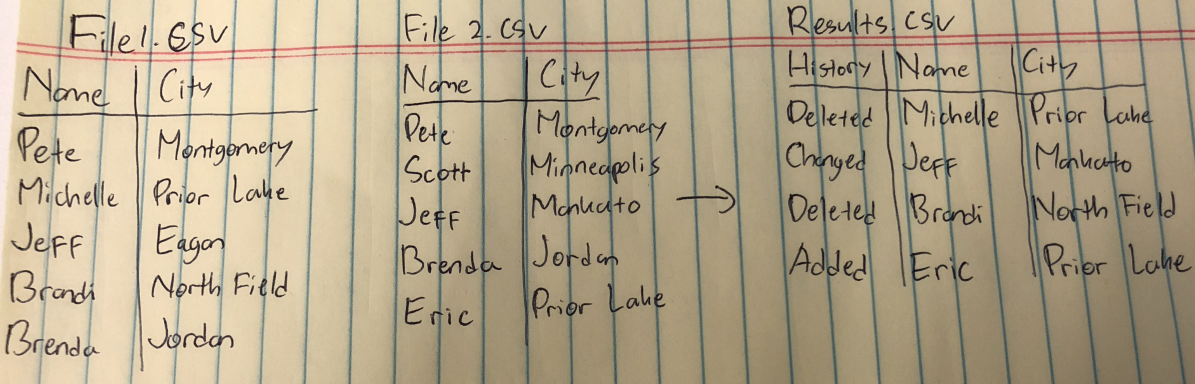 File1.CSV
Name City
Pete Montgomery
Michelle Prior Lake
Jeff Eagan
Brandi North Field
Brenda Jordan
File 2.CSV
Name City
Pete Montgomery
Scott Minneapolis
Jeff Mankato
Brenda Jordan
Eric Prior Lake
Results.CSV
History Name City
Deleted Michelle Prior Lake
Changed Jeff Mankato
Deleted Brandi North Field
Added Eric Prior Lake